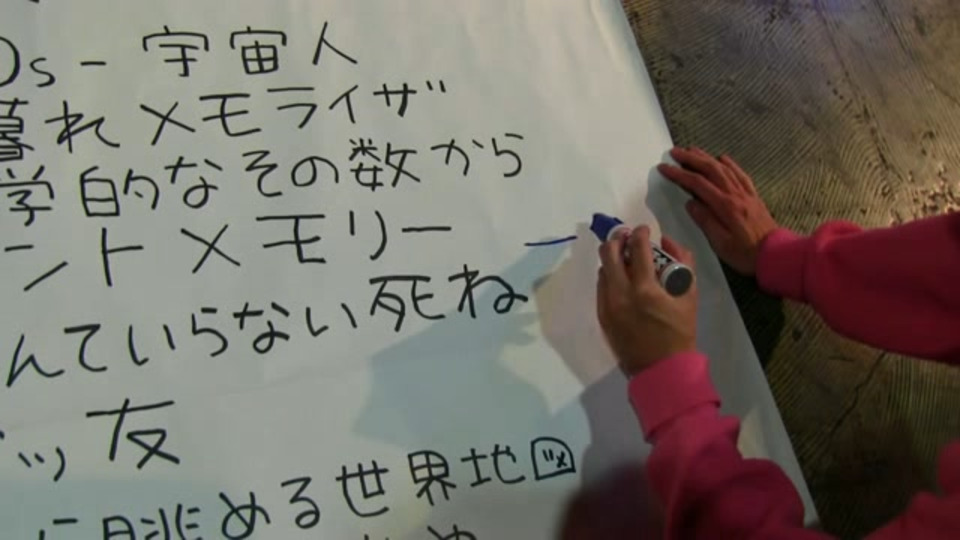 Os - 宇宙人
暮れメモライザ
学的なその数から
ントメモリー
んていらない死ね
ッ友
に眺める世界地図